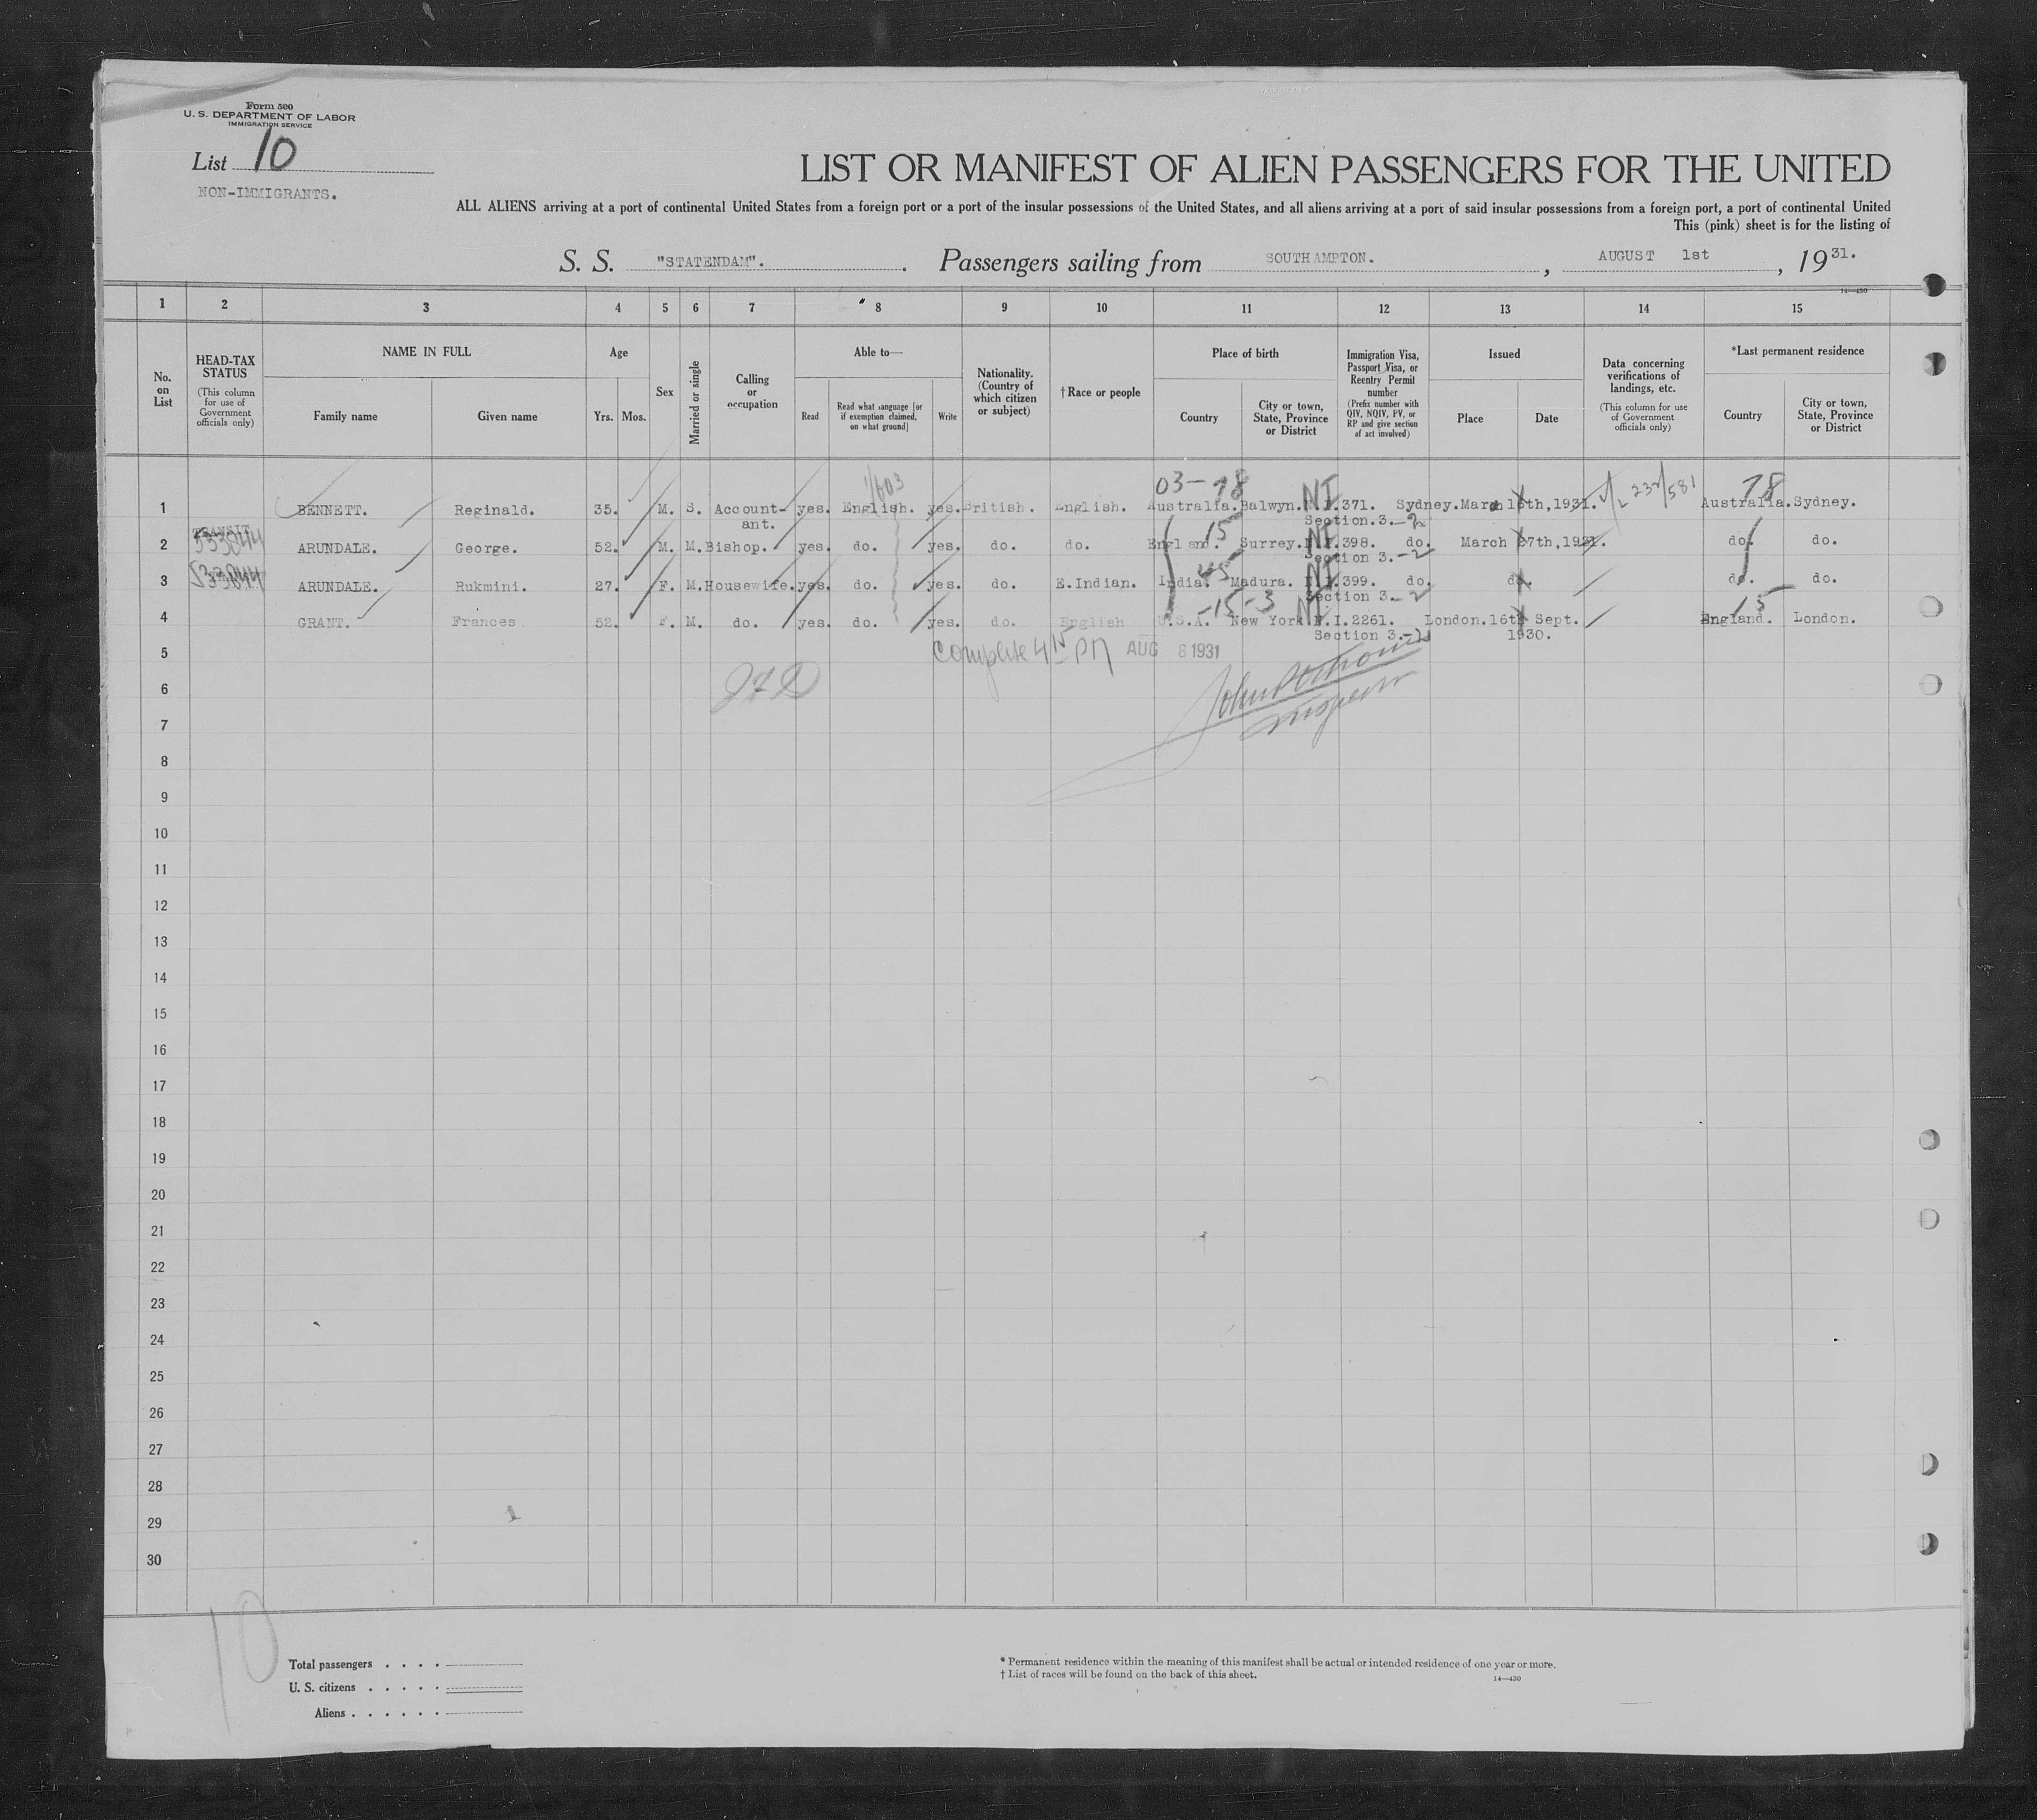 Form 500
U. S. DEPARTMENT OF LABOR
IMMIGRATION SERVICE
List 10
NON-IMMIGRANTS.
LIST OR MANIFEST OF ALIEN PASSENGERS FOR THE UNITED
ALL ALIENS arriving at a port of continental United States from a foreign port or a port of the insular possessions of the United States, and all aliens arriving at a port of said insular possessions from a foreign port, a port of continental United
This (pink) sheet is for the listing of
S. S. "STATENDAM". Passengers sailing from SOUTHAMPTON. , AUGUST 1st , 1931.
14—430
1 2 3 4 5 6 7 8 9 10 11 12 13 14 15
No. on List
HEAD-TAX STATUS
(This column for use of Government officials only)
NAME IN FULL
Family name Given name
Age
Yrs. Mos.
Sex
Married or single
Calling or occupation
Able to—
Read Read what language [or if exemption claimed, on what ground] Write
Nationality. (Country of which citizen or subject)
†Race or people
Place of birth
Country City or town, State, Province or District
Immigration Visa, Passport Visa, or Reentry Permit number
(Prefix number with QIV, NQIV, PV, or RP and give section of act involved)
Issued
Place Date
Data concerning verifications of landings, etc.
(This column for use of Government officials only)
*Last permanent residence
Country City or town, State, Province or District
03-78 NI 78
1 BENNETT. Reginald. 35. M. S. Account- yes. English. yes. British. English. Australia. Balwyn. N.I.371. Sydney. March 16th,1931. Australia. Sydney.
ant. Section.3.-2
TRANSIT
15 NI
2 533844 ARUNDALE. George. 52. M. M. Bishop. yes. do. yes. do. do. England. Surrey. N.I.398. do. March 27th,1931. do. do.
Section 3.-2
45 NI
3 533844 ARUNDALE. Rukmini. 27. F. M. Housewife. yes. do. yes. do. E.Indian. India. Madura. N.I.399. do. do. do. do.
Section 3.-2
-15-3 NI 15
4 GRANT. Frances 52. F. M. do. yes. do. yes. do. English U.S.A. New York N.I.2261. London. 16th Sept. England. London.
Section 3.-2 1930.
5 Complete 4 15 PM AUG 6 1931
6
7
8
9
10
11
12
13
14
15
16
17
18
19
20
21
22
23
24
25
26
27
28
29
30
1
10
Total passengers . . . .
U. S. citizens . . . . .
Aliens . . . . . .
* Permanent residence within the meaning of this manifest shall be actual or intended residence of one year or more.
† List of races will be found on the back of this sheet.
14—430